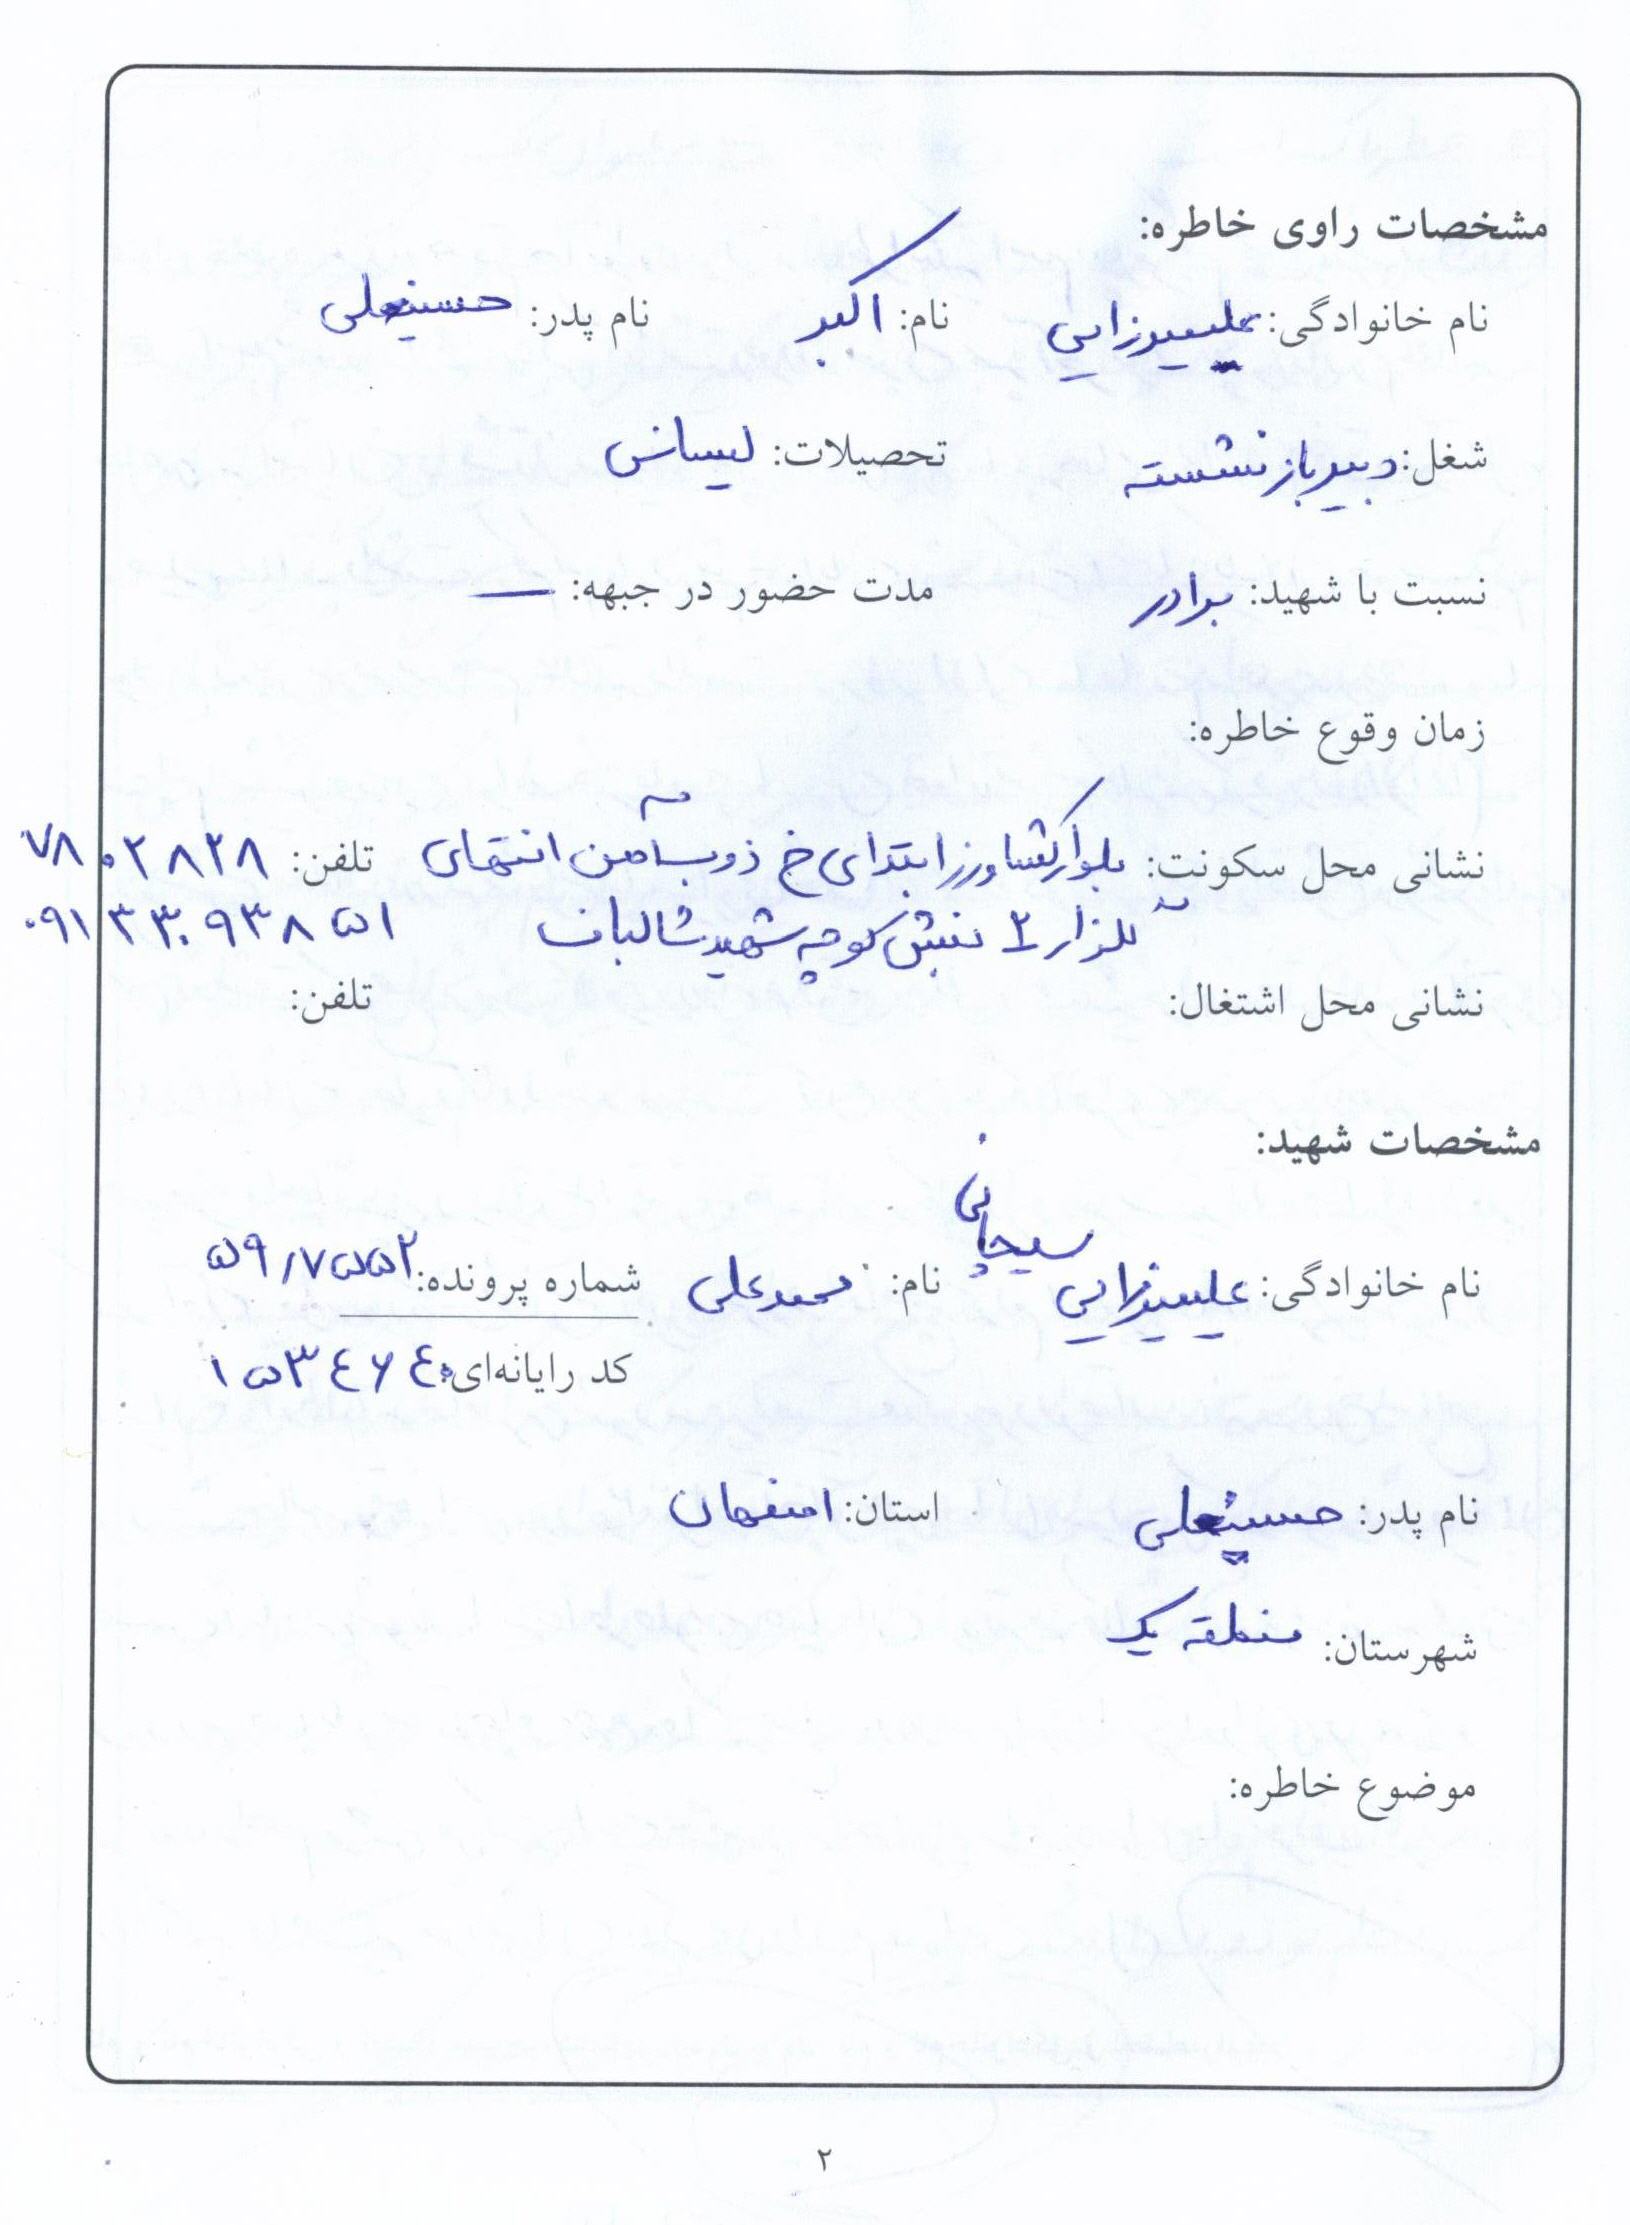 مشخصات راوی خاطره:
نام خانوادگی: علیمیرزایی نام: اکبر نام پدر: حسینعلی
شغل: دبیر بازنشسته تحصیلات: لیسانس
نسبت با شهید: برادر مدت حضور در جبهه: —
زمان وقوع خاطره:
نشانی محل سکونت: بلوار کشاورز ابتدای خ ذوب آهن انتهای تلفن: ۷۸۰۲۸۲۸
گلزار ۲ نبش کوچه شهید شالبان ۰۹۱۳۳۰۹۳۸۵۱
نشانی محل اشتغال: تلفن:
مشخصات شهید:
نام خانوادگی: علیمیرزایی سیچانی نام: محمدعلی شماره پرونده: ۵۹/۷۵۵۲
کد رایانه‌ای: ۱۵۳۴۶۴۰
نام پدر: حسینعلی استان: اصفهان
شهرستان: منطقه یک
موضوع خاطره:
۲